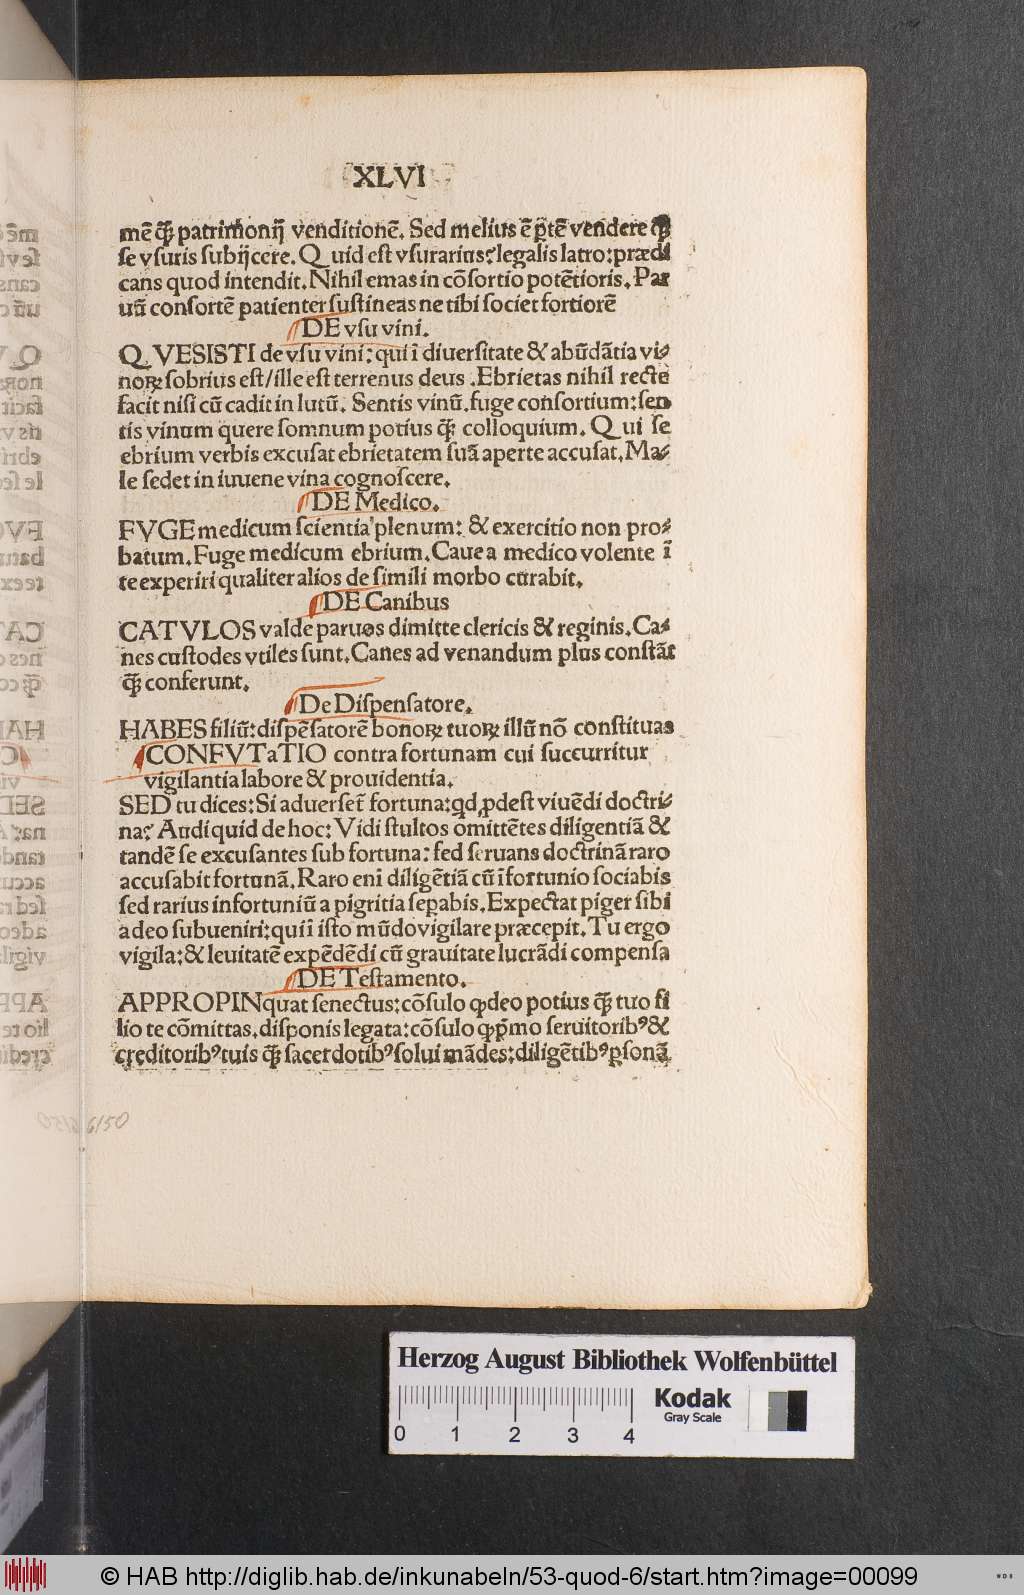 XLVI
mē ꝙ̃ patrimonij venditionē. Sed melius ē ꝑtē vendere ꝙ̃
se vsuris subijcere. Quid est vsurarius? legalis latro: prædi
cans quod intendit. Nihil emas in cōsortio potētioris. Par
uū consortē patienter sustineas ne tibi societ fortiorē
DE vsu vini.
QVESISTI de vsu vini: qui ī diuersitate & abūdātia vi-
noꝝ sobrius est/ ille est terrenus deus. Ebrietas nihil recte
facit nisi cū cadit in lutū. Sentis vinū. fuge consortium: sen
tis vinum quere somnum potius ꝙ̃ colloquium. Qui se
ebrium verbis excusat ebrietatem suā aperte accusat. Ma-
le sedet in iuuene vina cognoscere.
DE Medico.
FVGE medicum scientia plenum: & exercitio non pro-
batum. Fuge medicum ebrium. Caue a medico volente ī
te experiri qualiter alios de simili morbo curabit.
DE Canibus
CATVLOS valde paruos dimitte clericis & reginis. Ca-
nes custodes vtiles sunt. Canes ad venandum plus constāt
ꝙ̃ conferunt.
De Dispensatore.
HABES filiū: dispēsatorē bonoꝝ tuoꝝ illū nō constituas
CONFVTaTIO contra fortunam cui succurritur
vigilantia labore & prouidentia.
SED tu dices: Si aduerset̄ fortuna: qd ꝓdest viuēdi doctri-
na? Audi quid de hoc: Vidi stultos omittētes diligentiā &
tandē se excusantes sub fortuna: sed seruans doctrinā raro
accusabit fortunā. Raro enī diligētiā cū īfortunio sociabis
sed rarius infortuniū a pigritia sepabis. Expectat piger sibi
a deo subueniri: qui ī isto mūdo vigilare præcepit. Tu ergo
vigila: & leuitatē expēdēdi cū grauitate lucrādi compensa
DE Testamento.
APPROPINquat senectus: cōsulo ꝙ deo potius ꝙ̃ tuo fi
lio te cōmittas. disponis legata: cōsulo ꝙ pͥmo seruitoribꝰ &
creditoribꝰ tuis ꝙ̃ sacerdotibꝰ solui mādes: diligētibꝰ ꝑsonā
6150
Herzog August Bibliothek Wolfenbüttel
Kodak
Gray Scale
0 1 2 3 4
© HAB http://diglib.hab.de/inkunabeln/53-quod-6/start.htm?image=00099